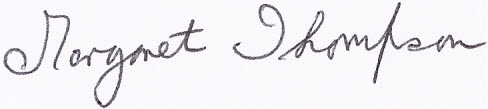 Margaret Thompson